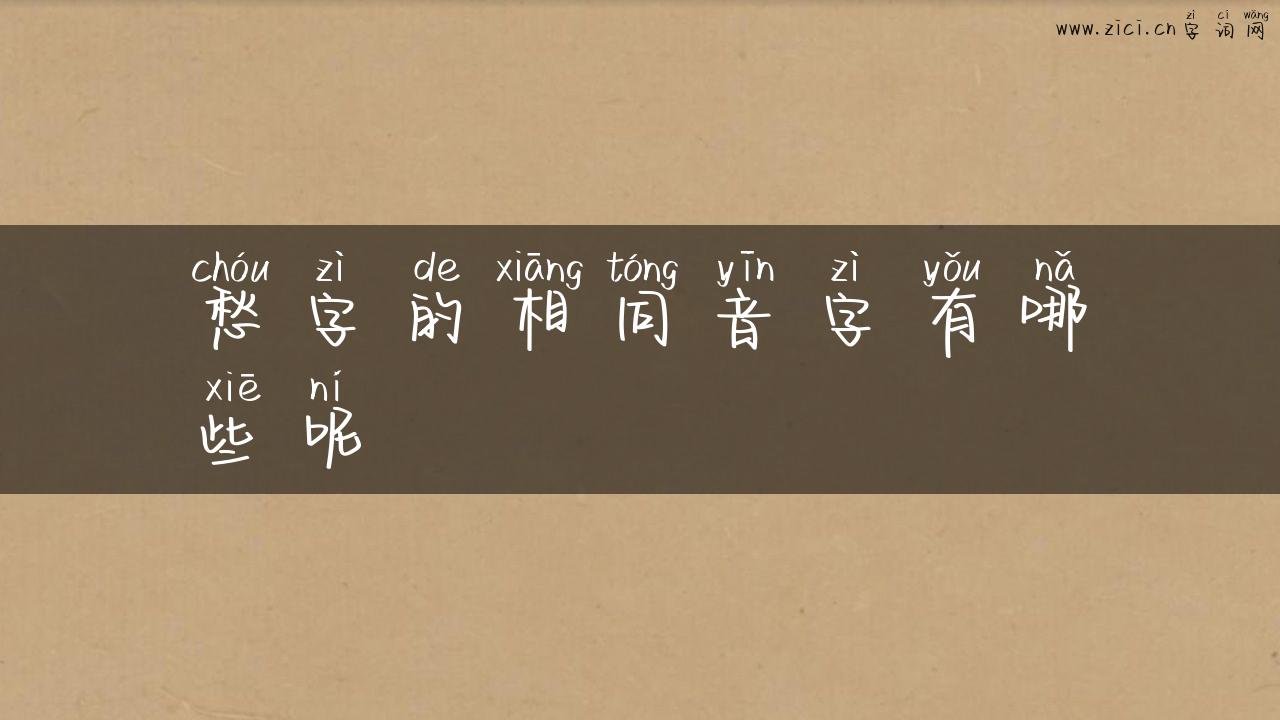 zì cí wǎng
www.zici.cn 字词网
chóu zì de xiāng tóng yīn zì yǒu nǎ
愁字的相同音字有哪
xiē ní
些呢